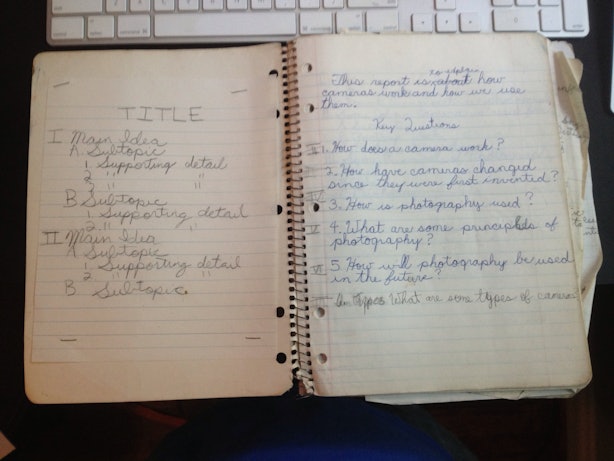 TITLE
I Main Idea
A. Subtopic
1. Supporting detail
2. " "
B. Subtopic
1. Supporting detail
2. " "
II Main Idea
A. Subtopic
1. Supporting detail
2. " "
B. Subtopic
to explain
This report is about how
cameras work and how we use
them.
Key Questions
1. How does a camera work?
2. How have cameras changed
since they were first invented?
3. How is photography used?
IV
4. What are some principles of
photography?
VI 5. How will photography be used
in the future?
Types What are some types of cameras